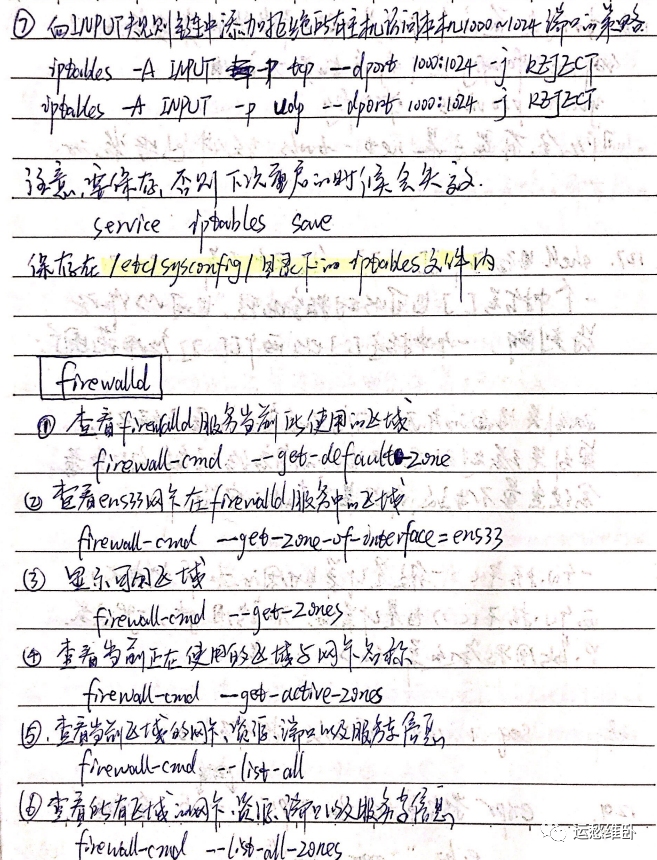 ⑦ 向INPUT规则链中添加拒绝所有主机访问本机1000~1024端口的策略
iptables -A INPUT -p tcp --dport 1000:1024 -j REJECT
iptables -A INPUT -p udp --dport 1000:1024 -j REJECT
注意,要保存,否则下次重启的时候会失效.
service iptables save
保存在 /etc/sysconfig/ 目录下的 iptables文件内
firewalld
① 查看firewalld服务当前所使用的区域
firewall-cmd --get-default-zone
② 查看ens33网卡在firewalld服务中的区域
firewall-cmd --get-zone-of-interface=ens33
③ 显示可用区域
firewall-cmd --get-zones
④ 查看当前正在使用的区域与网卡名称
firewall-cmd --get-active-zones
⑤.查看当前区域的网卡、资源、端口以及服务等信息
firewall-cmd --list-all
⑥ 查看所有区域的网卡、资源、端口以及服务等信息
firewall-cmd --list-all-zones
运愁维卧